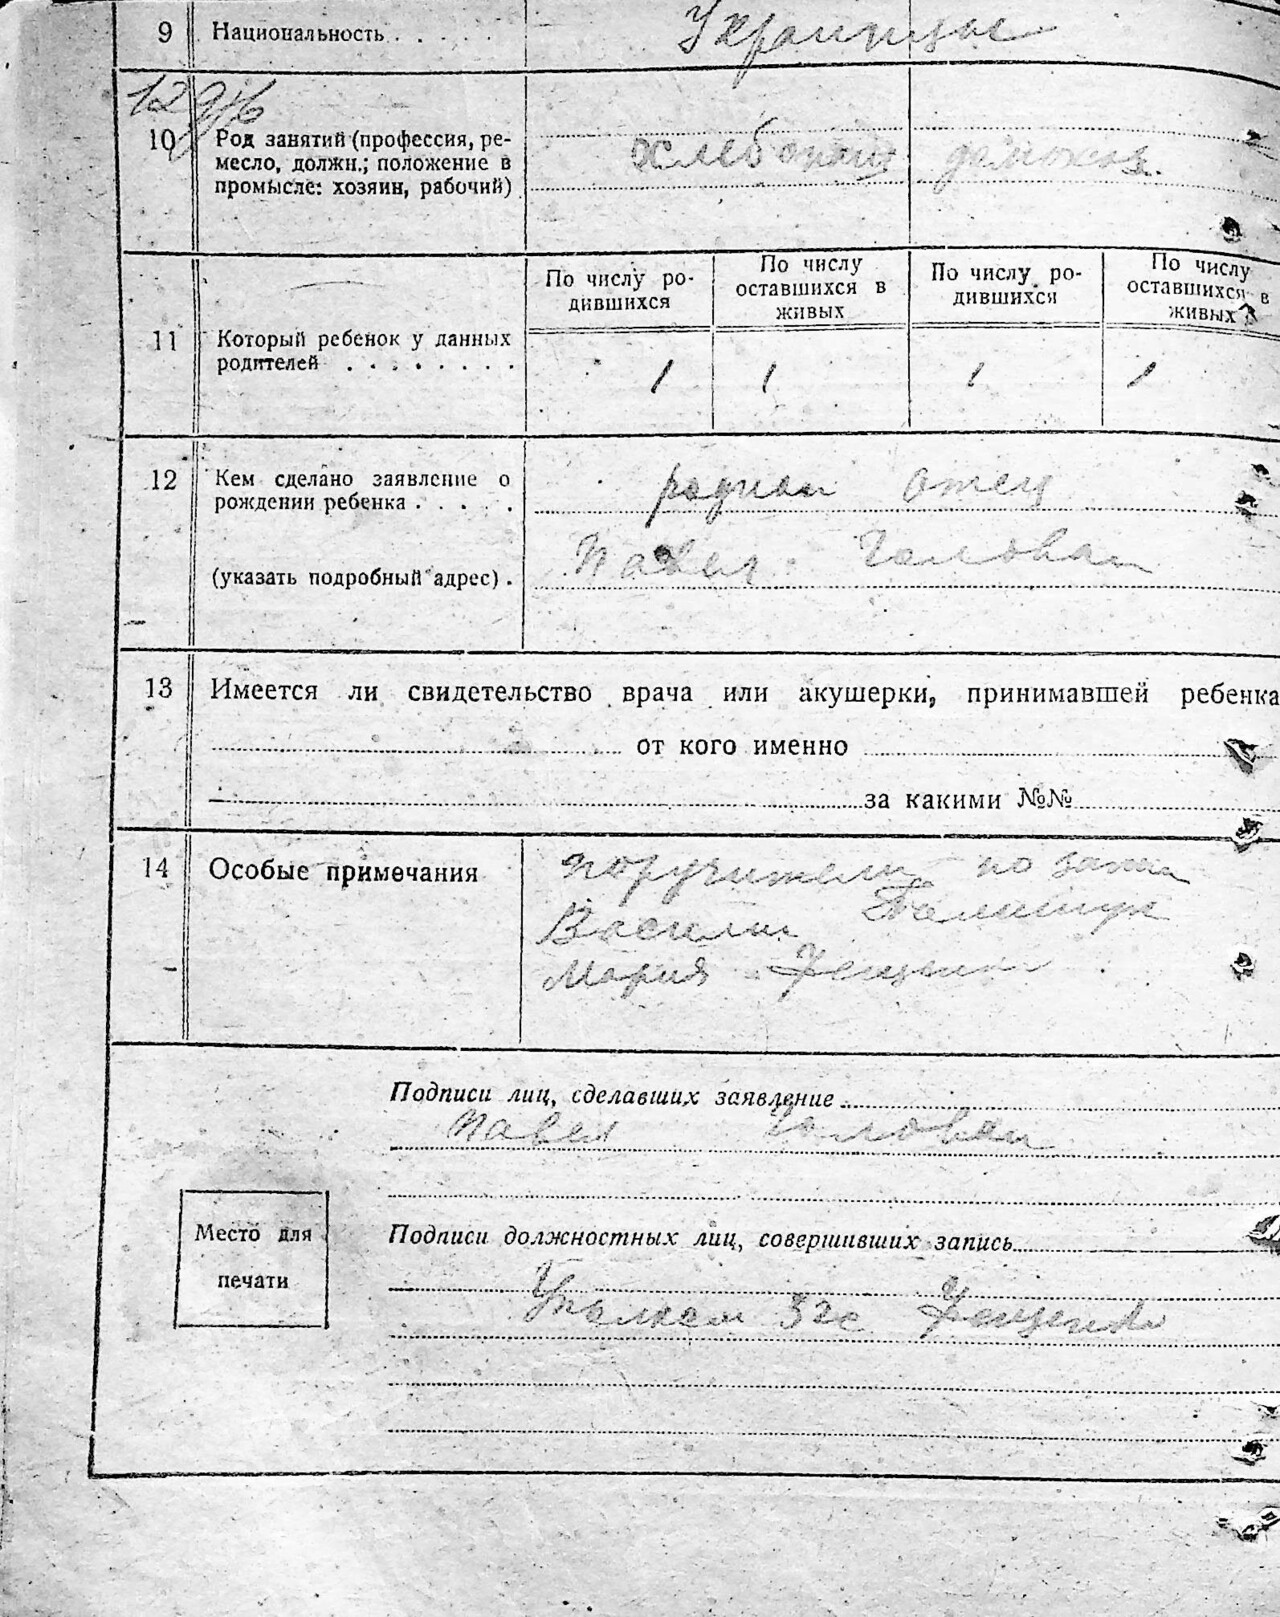 9 Национальность . . . . . Украинцы
10 Род занятий (профессия, ре-
месло, должн.; положение в
промысле: хозяин, рабочий)
хлебопаш домохоз.
11 Который ребенок у данных
родителей . . . . . . . .
По числу ро-
дившихся
По числу
оставшихся в
живых
По числу ро-
дившихся
По числу
оставшихся в
живых
1 1 1 1
12 Кем сделано заявление о
рождении ребенка . . . . .
родной отец
(указать подробный адрес) .
Павел Голован
13 Имеется ли свидетельство врача или акушерки, принимавшей ребенка
от кого именно
за какими №№
14 Особые примечания
поручители по
Василий
Мария
Подписи лиц, сделавших заявление
Павел Голован
Место для
печати
Подписи должностных лиц, совершивших запись